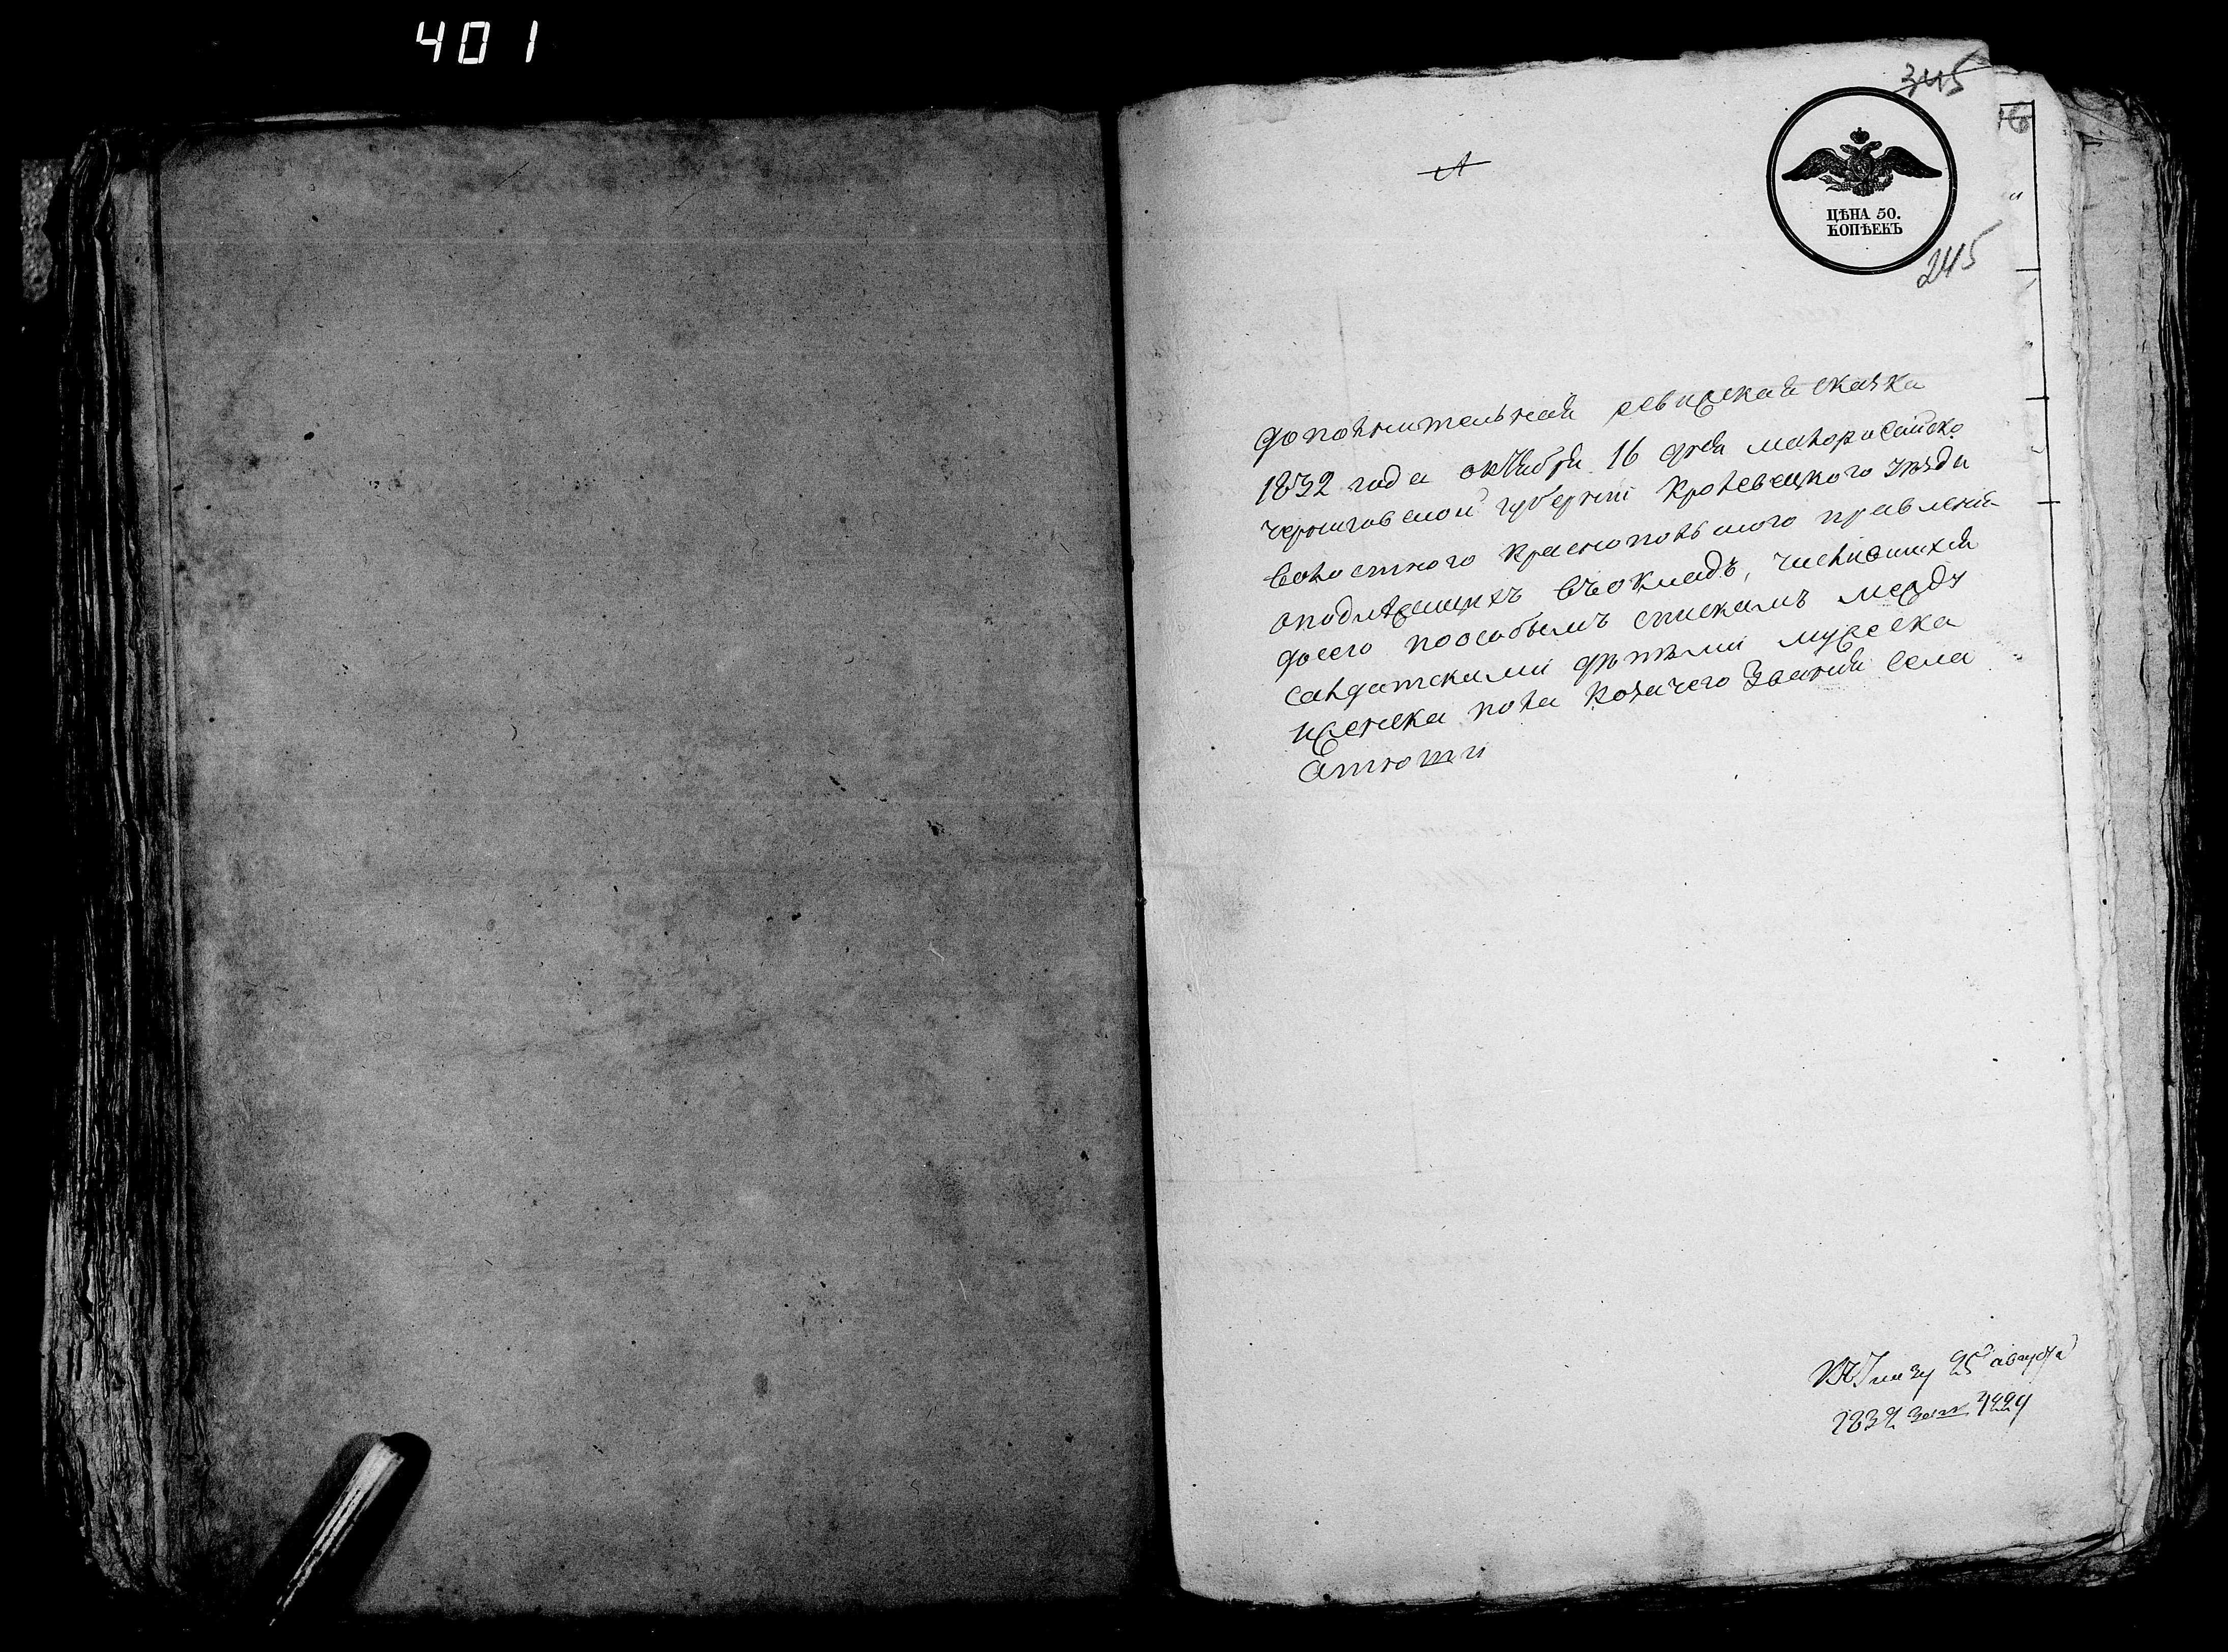 401
345
ЦѢНА 50.
КОПѢЕКЪ
245
дополнительная ревижская сказка
1832 года октября 16 дня малоросийско
черниговской губернiи Кролевецкого уѣзда
волостного краснопольского правленiя
оподлежащихъ въокладъ, числившихся
досего поособымъ спискамъ между
салдатскими дѣтьми мужеска
иженска пола козачего званiя села
Атюши
25 августа
1832